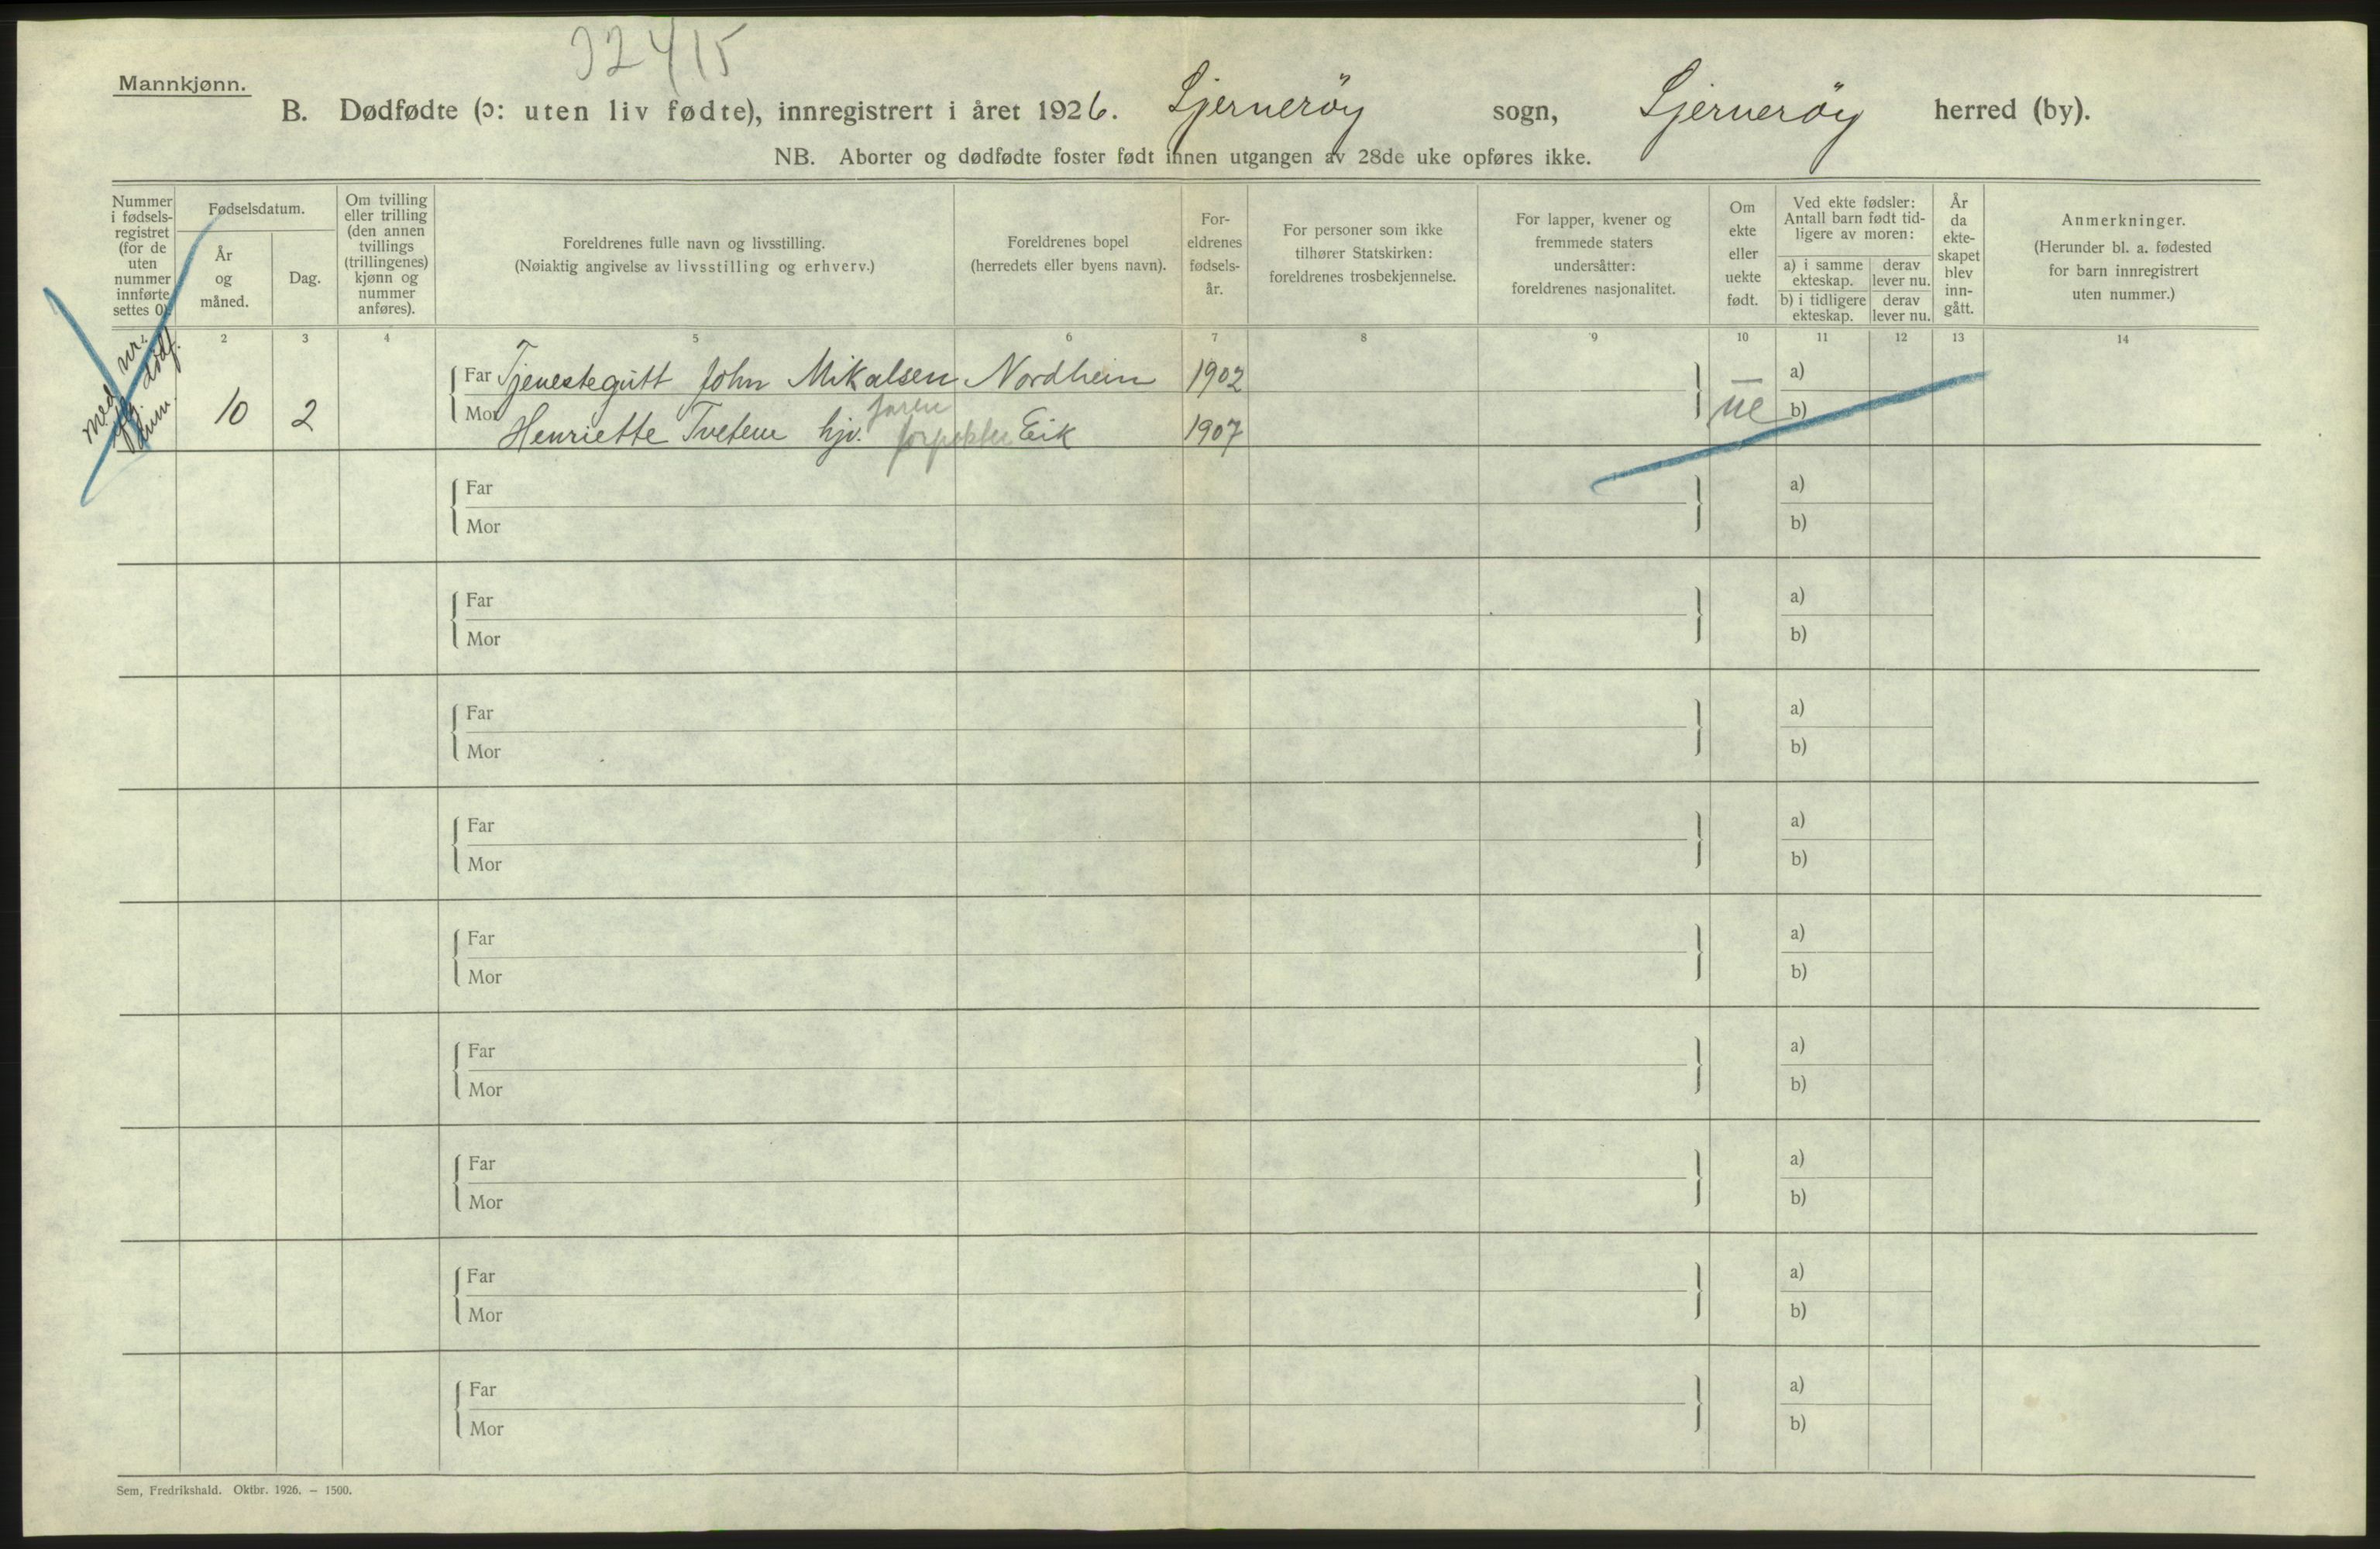 32415
Mannkjønn.
B. Dødfødte (ɔ: uten liv fødte), innregistrert i året 1926. Sjerneröy sogn, Sjerneröy herred (by).
NB. Aborter og dødfødte foster født innen utgangen av 28de uke opføres ikke.
Nummer i fødsels-registret (for de uten nummer innførte settes 0).
Fødselsdatum.
År og måned.
Dag.
Om tvilling eller trilling (den annen tvillings (trillingenes) kjønn og nummer anføres).
Foreldrenes fulle navn og livsstilling.
(Nøiaktig angivelse av livsstilling og erhverv.)
Foreldrenes bopel
(herredets eller byens navn).
For-eldrenes fødsels-år.
For personer som ikke tilhører Statskirken: foreldrenes trosbekjennelse.
For lapper, kvener og fremmede staters undersåtter: foreldrenes nasjonalitet.
Om ekte eller uekte født.
Ved ekte fødsler: Antall barn født tid-ligere av moren:
a) i samme ekteskap. derav lever nu.
b) i tidligere ekteskap. derav lever nu.
År da ekte-skapet blev inn-gått.
Anmerkninger.
(Herunder bl. a. fødested for barn innregistrert uten nummer.)
1 2 3 4 5 6 7 8 9 10 11 12 13 14
med nr.
dødf.
Far Tjenestegutt John Mikalsen Nordheim 1902 — a)
10 2 Mor Henriette Tveten hjv. faren Eik 1907 ue b)
Far a)
Mor b)
Far a)
Mor b)
Far a)
Mor b)
Far a)
Mor b)
Far a)
Mor b)
Far a)
Mor b)
Far a)
Mor b)
Far a)
Mor b)
Far a)
Mor b)
Sem, Fredrikshald. Oktbr. 1926. – 1500.